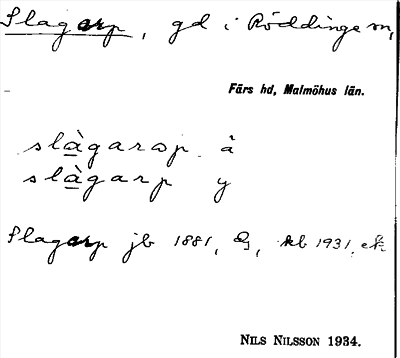 Slagarp, gd i Röddinge sn,
Färs hd, Malmöhus län.
slàgarap å
slàgarp y
Slagarp jb 1881, G, kb 1931, ek
NILS NILSSON 1934.